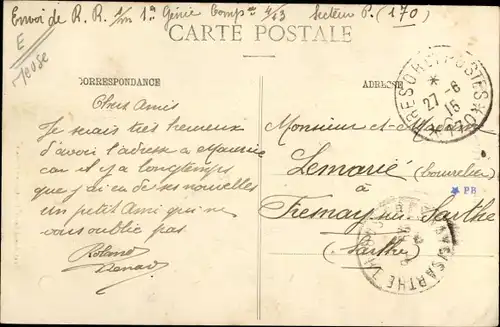 Envoi de R. R. 1/m 1er Génie Comp 4/23 Secteur P. (170)
E
Meuse
CARTE POSTALE
CORRESPONDANCE
ADRESSE
TRESOR ET POSTES
* 27-6 15 *
170
Chers Amis
Je serais très heureux
d'avoir l'adresse à Maurice
car il y a longtemps
que j'ai eu de ses nouvelles
un petit Ami qui ne
vous oublie pas
Roland
Monsieur et Madame
Lemarié (bourrelier)
à
Fresnay sur Sarthe
(Sarthe)
* PB
SARTHE